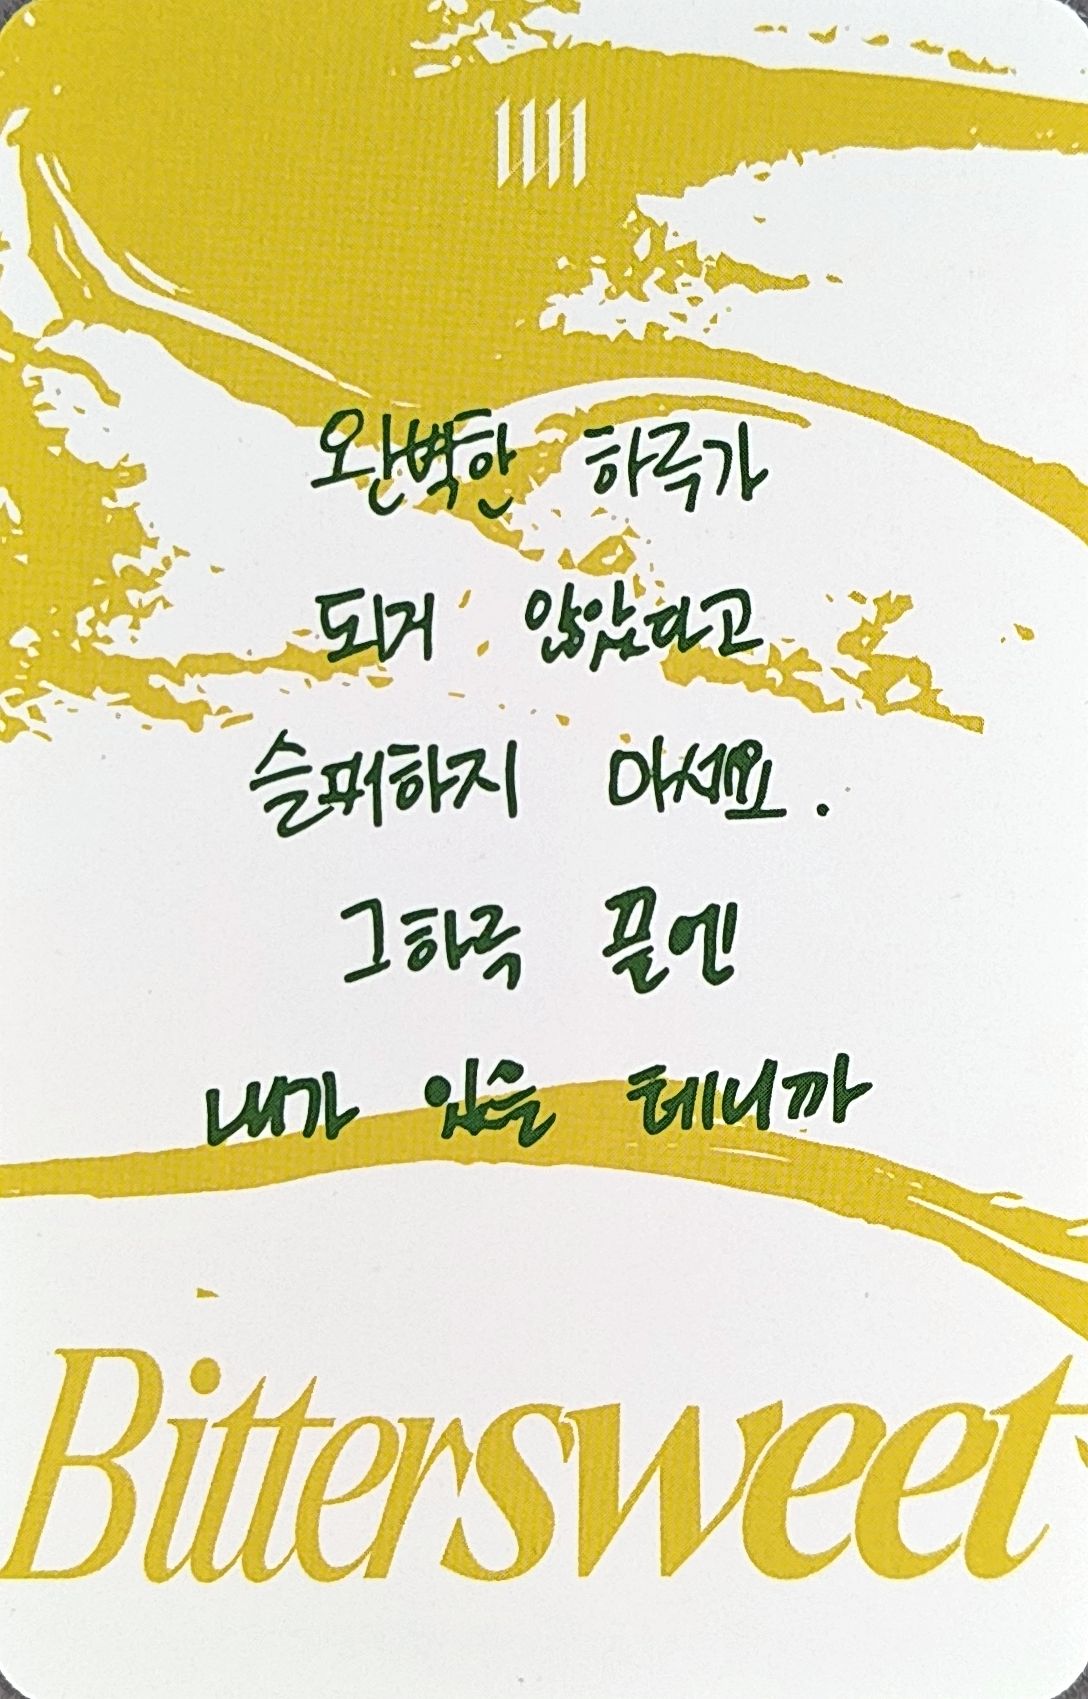 완벽한 하루가
되지 않았다고
슬퍼하지 마세요.
그 하루 끝엔
내가 있을 테니까
Bittersweet